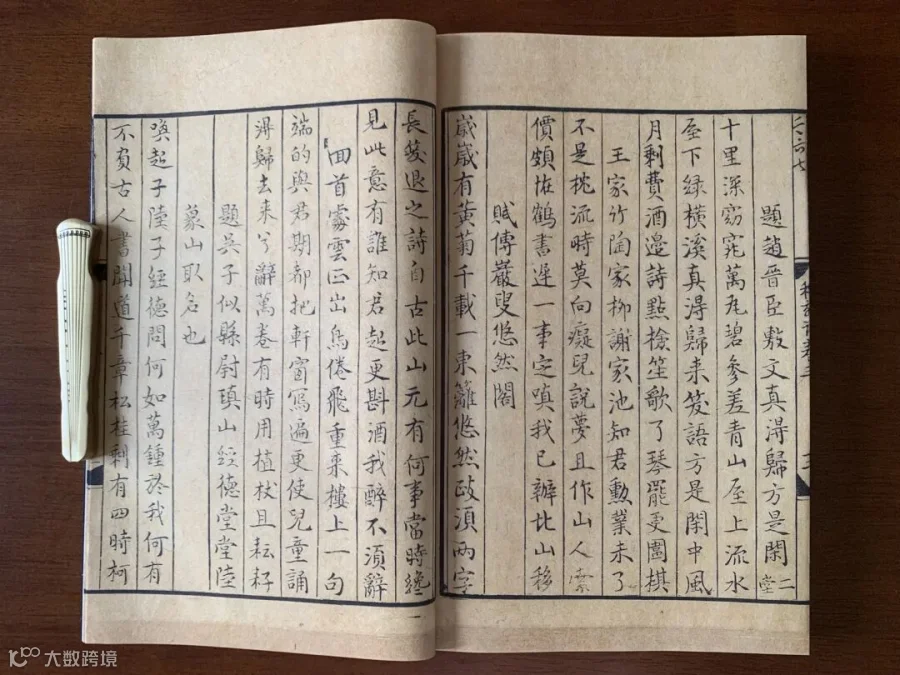 題趙晉臣敷文真淂歸方是閑二堂
十里深窈窕萬瓦碧參差青山屋上流水
屋下綠橫溪真淂歸来笑語方是閑中風
月剩費酒邊詩點檢笙歌了琴罷更圍棋
王家竹陶家柳謝家池知君勳業未了
不是枕流時莫向癡兒說夢且作山人索
價頗怪鶴書遲一事定嗔我已辦北山移
賦傅巖叟悠然閣
歲歲有黃菊千載一東籬悠然政須兩字
長笑退之詩自古此山元有何事當時纔
見此意有誰知君起更斟酒我醉不須辭
回首處雲正出鳥倦飛重来樓上一句
端的與君期都把軒窗寫遍更使兒童誦
淂歸去来兮辭萬卷有時用植杖且耘耔
題吳子似縣尉瑱山經德堂堂陸
象山取名也
喚起子陸子經德問何如萬鍾於我何有
不負古人書聞道千章松桂剩有四時柯
二六七
大数跨境